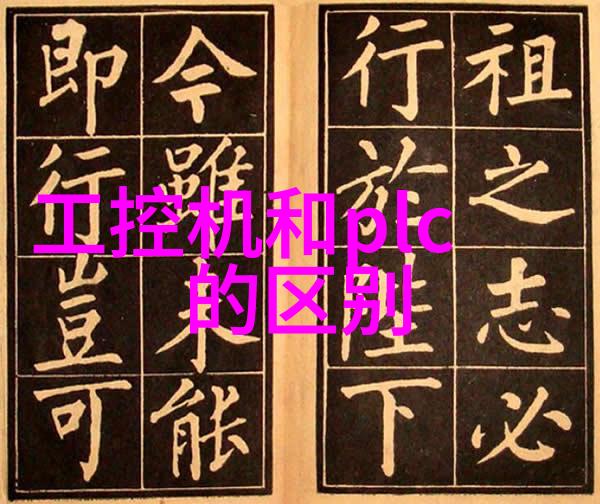 工控机和plc
的区别
祖之志必
行於陛下
今雖未能
即行豈可